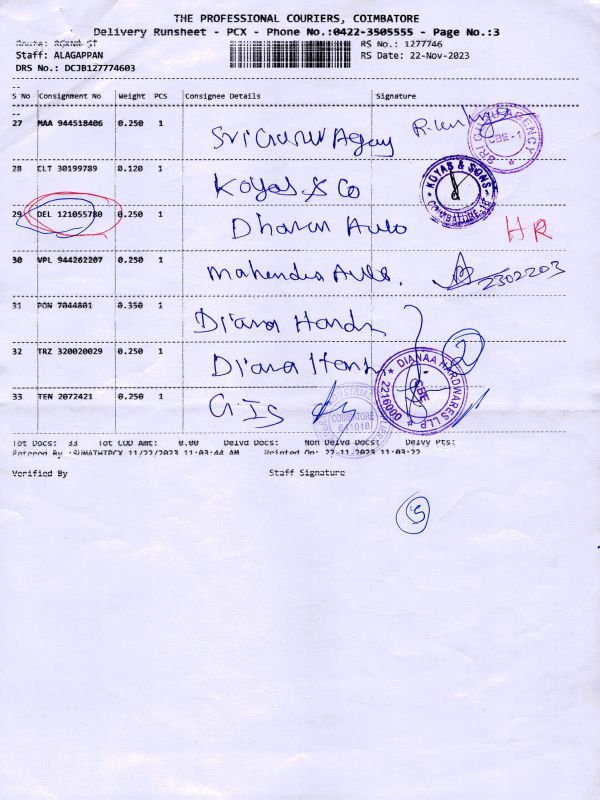 THE PROFESSIONAL COURIERS, COIMBATORE
Delivery Runsheet - PCX - Phone No.:0422-3505555 - Page No.:3
RS No.: 1277746
Staff: ALAGAPPAN RS Date: 22-Nov-2023
DRS No.: DCJB127774603
S No Consignment No Weight PCS Consignee Details Signature
27 MAA 944518406 0.250 1
CBE-1
28 CLT 30199789 0.120 1 Koyas & Co KOYAS & SONS
29 DEL 121055780 0.250 1 Dharan Auto HR
30 VPL 944262207 0.250 1 Mahendra Auto. 2302203
31 PON 7044801 0.350 1 Diana Hards
32 TRZ 320020029 0.250 1 Diana Hards 2
DIANAA HARDWARES LLP CBE 2216000
33 TEN 2072421 0.250 1 G.I.S
Tot Docs: 33 Tot COD Amt: 0.00 Delvd Docs: Non Delvd Docs: Delvy Pts:
Entered By :SUMATHIPCX 11/22/2023 11:03:44 AM Printed On: 22-11-2023 11:03:22
Verified By Staff Signature
5